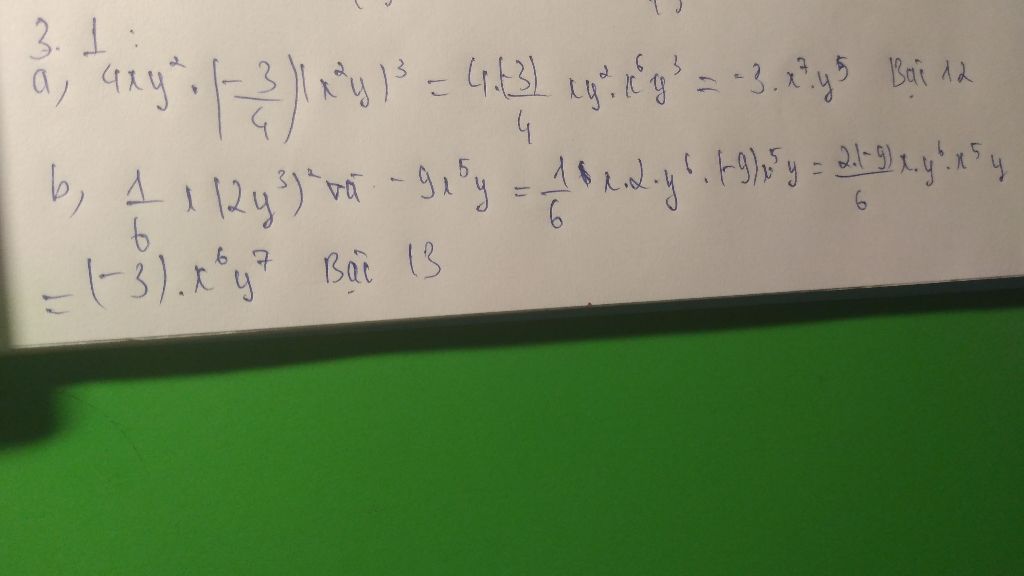 3. 1 :
a, 4xy² . (-3/4)(x²y)³ = 4.(-3)/4 xy² . x⁶y³ = -3 . x⁷ . y⁵ Bậc 12
b, 1/6 x (2y³)² và - 9x⁵y = 1/6 x . 2 . y⁶ . (-9)x⁵y = 2.(-9)/6 x . y⁶ . x⁵ y
= (-3) . x⁶y⁷ Bậc 13